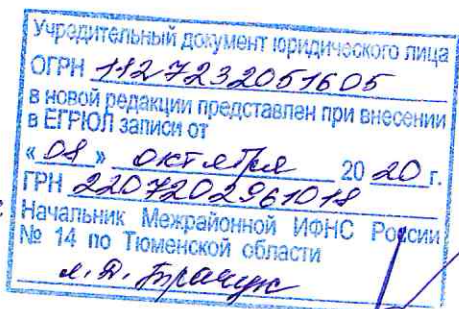 Учредительный документ юридического лица
ОГРН 1127232051605
в новой редакции представлен при внесении
в ЕГРЮЛ записи от
« 08 » октября 20 20 г.
ГРН 2207202961018
Начальник Межрайонной ИФНС России
№ 14 по Тюменской области